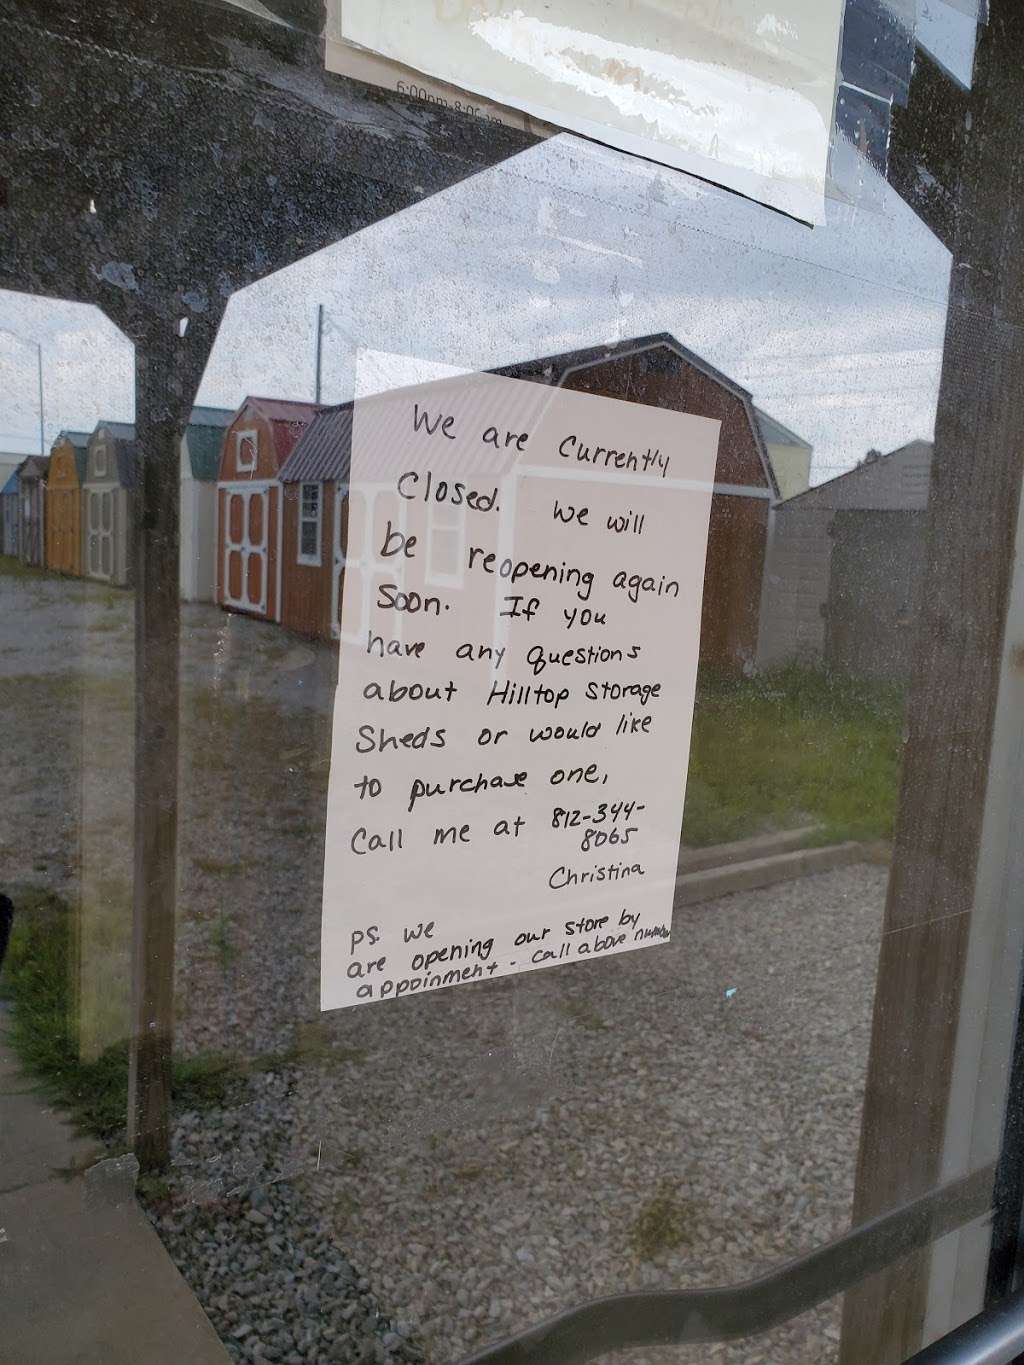 6:00pm-8:00
We are Currently
Closed. We will
be reopening again
Soon. If you
have any questions
about Hilltop Storage
Sheds or would like
to purchase one,
Call me at 812-344-
8065
Christina
PS. We
are opening our store by
appoinment. call above number